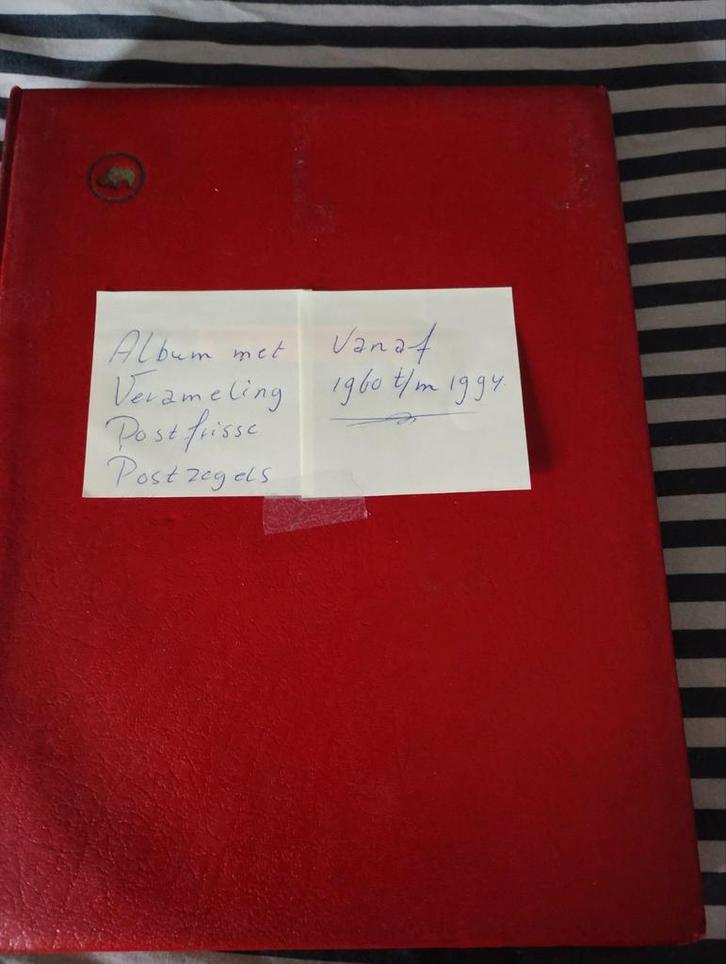 Album met
Verameling
Postfrisse
Postzegels
Vanaf
1960 t/m 1994